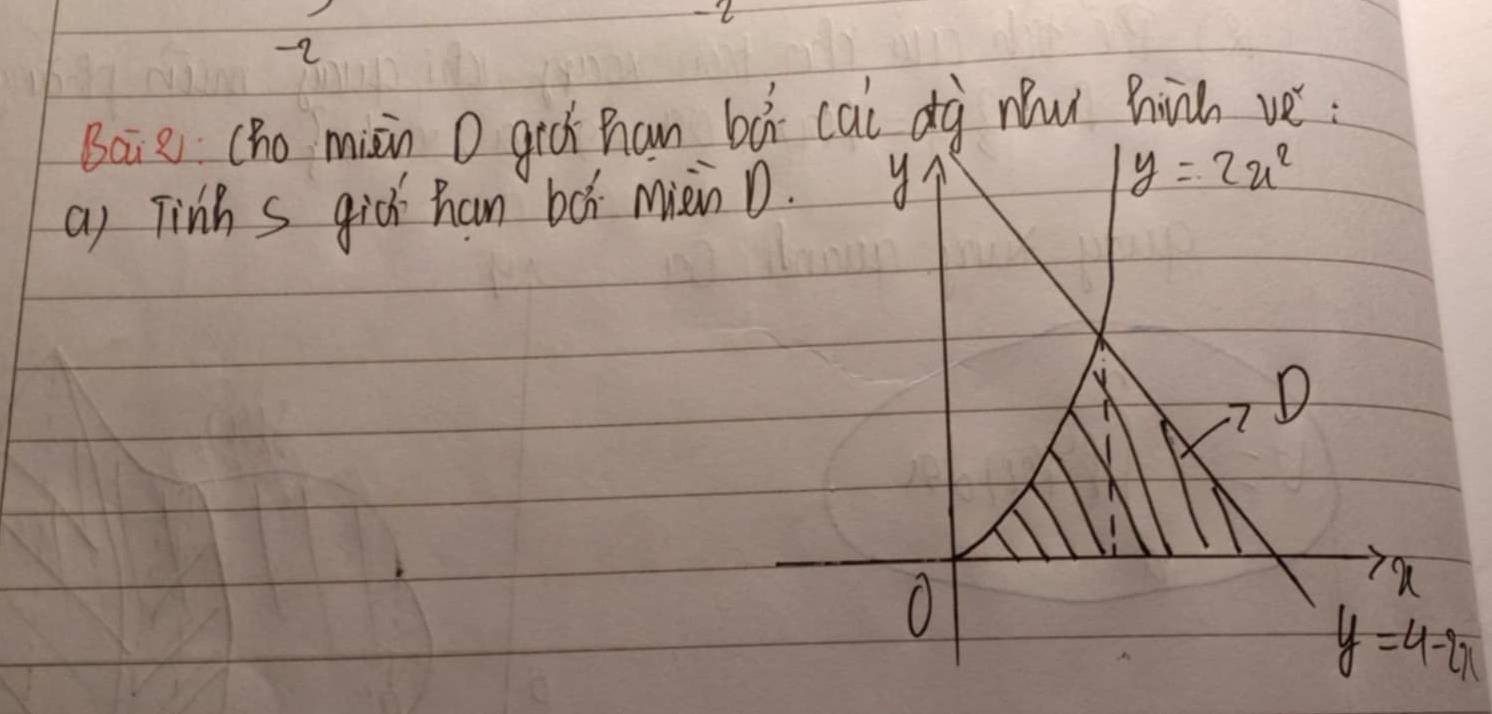 -2
-2
Bài 2: Cho miền D giới hạn bởi các đg như hình vẽ:
a) Tính S giới hạn bởi miền D.
y
y = 2x²
D
O
x
y = 4-2x